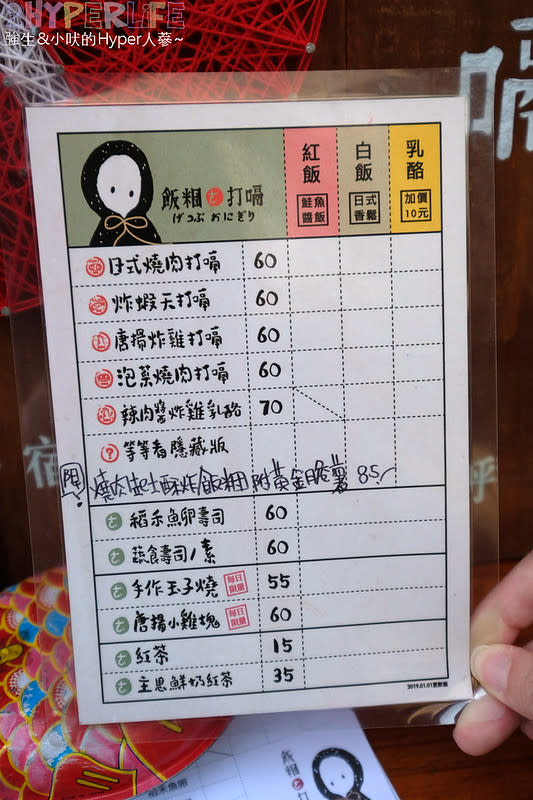 HYPERLIFE
強生&小吠的Hyper人蔘~
嗝
飯糰を打嗝
げっぷ おにぎり
紅飯
鮭魚醬飯
白飯
日式香鬆
乳酪
加價10元
日式燒肉打嗝 60
炸蝦天打嗝 60
唐揚炸雞打嗝 60
泡菜燒肉打嗝 60
辣肉醬炸雞乳酪 70
? 等等者隱藏版
限! 燒肉起士酥炸飯糰 附黃金脆薯 85.-
宿
呼
を 稻禾魚卵壽司 60
を 蔬食壽司/素 60
を 手作玉子燒 每日限量 55
を 唐揚小雞塊 每日限量 60
を 紅茶 15
を 主恩鮮奶紅茶 35
2019.01.01更新版
飯糰を打
稻禾魚卵